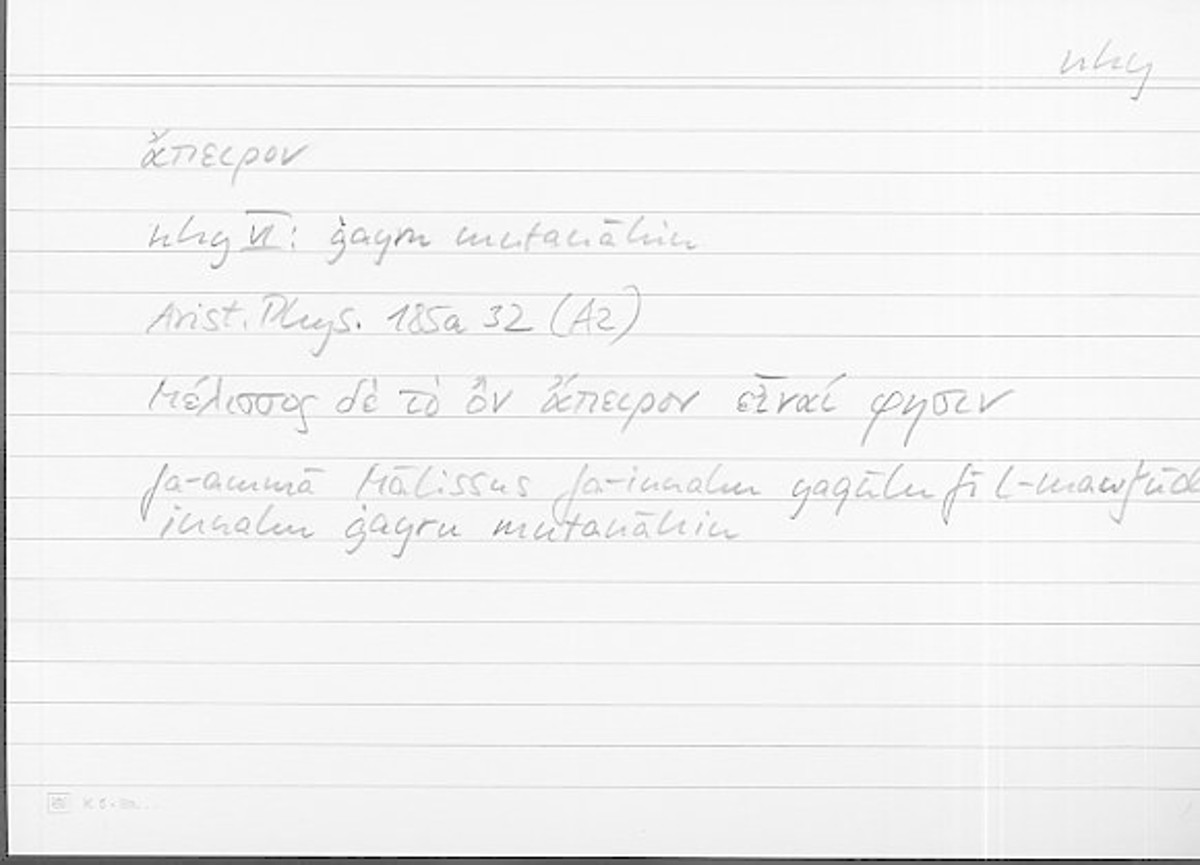 nhy
ἄπειρον
nhy VI: ġayru mutanāhin
Arist. Phys. 185a 32 (A2)
Μέλισσος δὲ τὸ ὂν ἄπειρον εἶναί φησιν
fa-ammā Mālissus fa-innahu yaqūlu fī l-mawǧūd
innahu ġayru mutanāhin